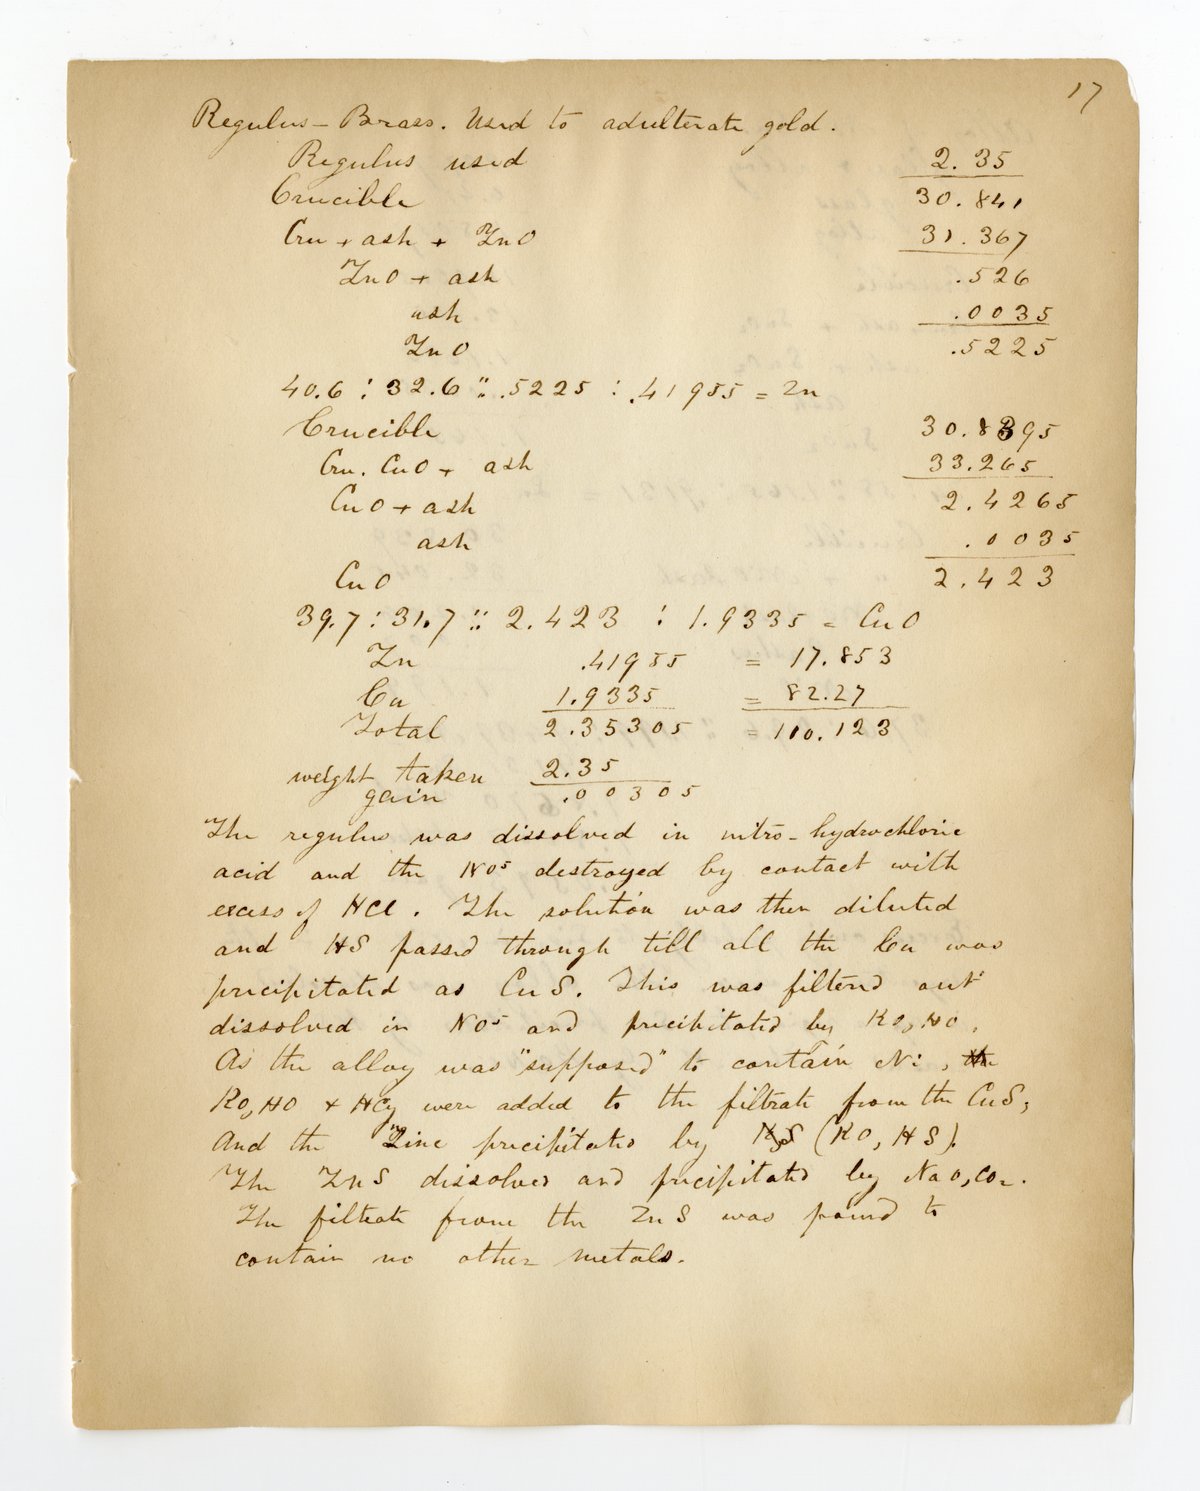 17
Regulus - Brass. Used to adulterate gold.
Regulus used 2.35
Crucible 30.841
Cru + ash + ZnO 31.367
ZnO + ash .526
ash .0035
ZnO .5225
40.6 : 32.6 :: .5225 : .41955 = Zn
Crucible 30.8395
Cru. CuO + ash 33.265
CuO + ash 2.4265
ash .0035
CuO 2.423
39.7 : 31.7 :: 2.423 : 1.9335 = CuO
Zn .41955 = 17.853
Cu 1.9335 = 82.27
Total 2.35305 = 100.123
weight taken 2.35
gain .00305
The regulus was dissolved in nitro-hydrochloric
acid and the NO⁵ destroyed by contact with
excess of HCl. The solution was then diluted
and HS passed through till all the Cu was
precipitated as CuS. This was filtered out
dissolved in NO⁵ and precipitated by KO, HO.
As the alloy was "supposed" to contain Ni, the
KO, HO + HCy were added to the filtrate from the CuS,
And the Zinc precipitated by (KO, HS).
The ZnS dissolved and precipitated by NaO, CO₂.
The filtrate from the ZnS was found to
contain no other metals.